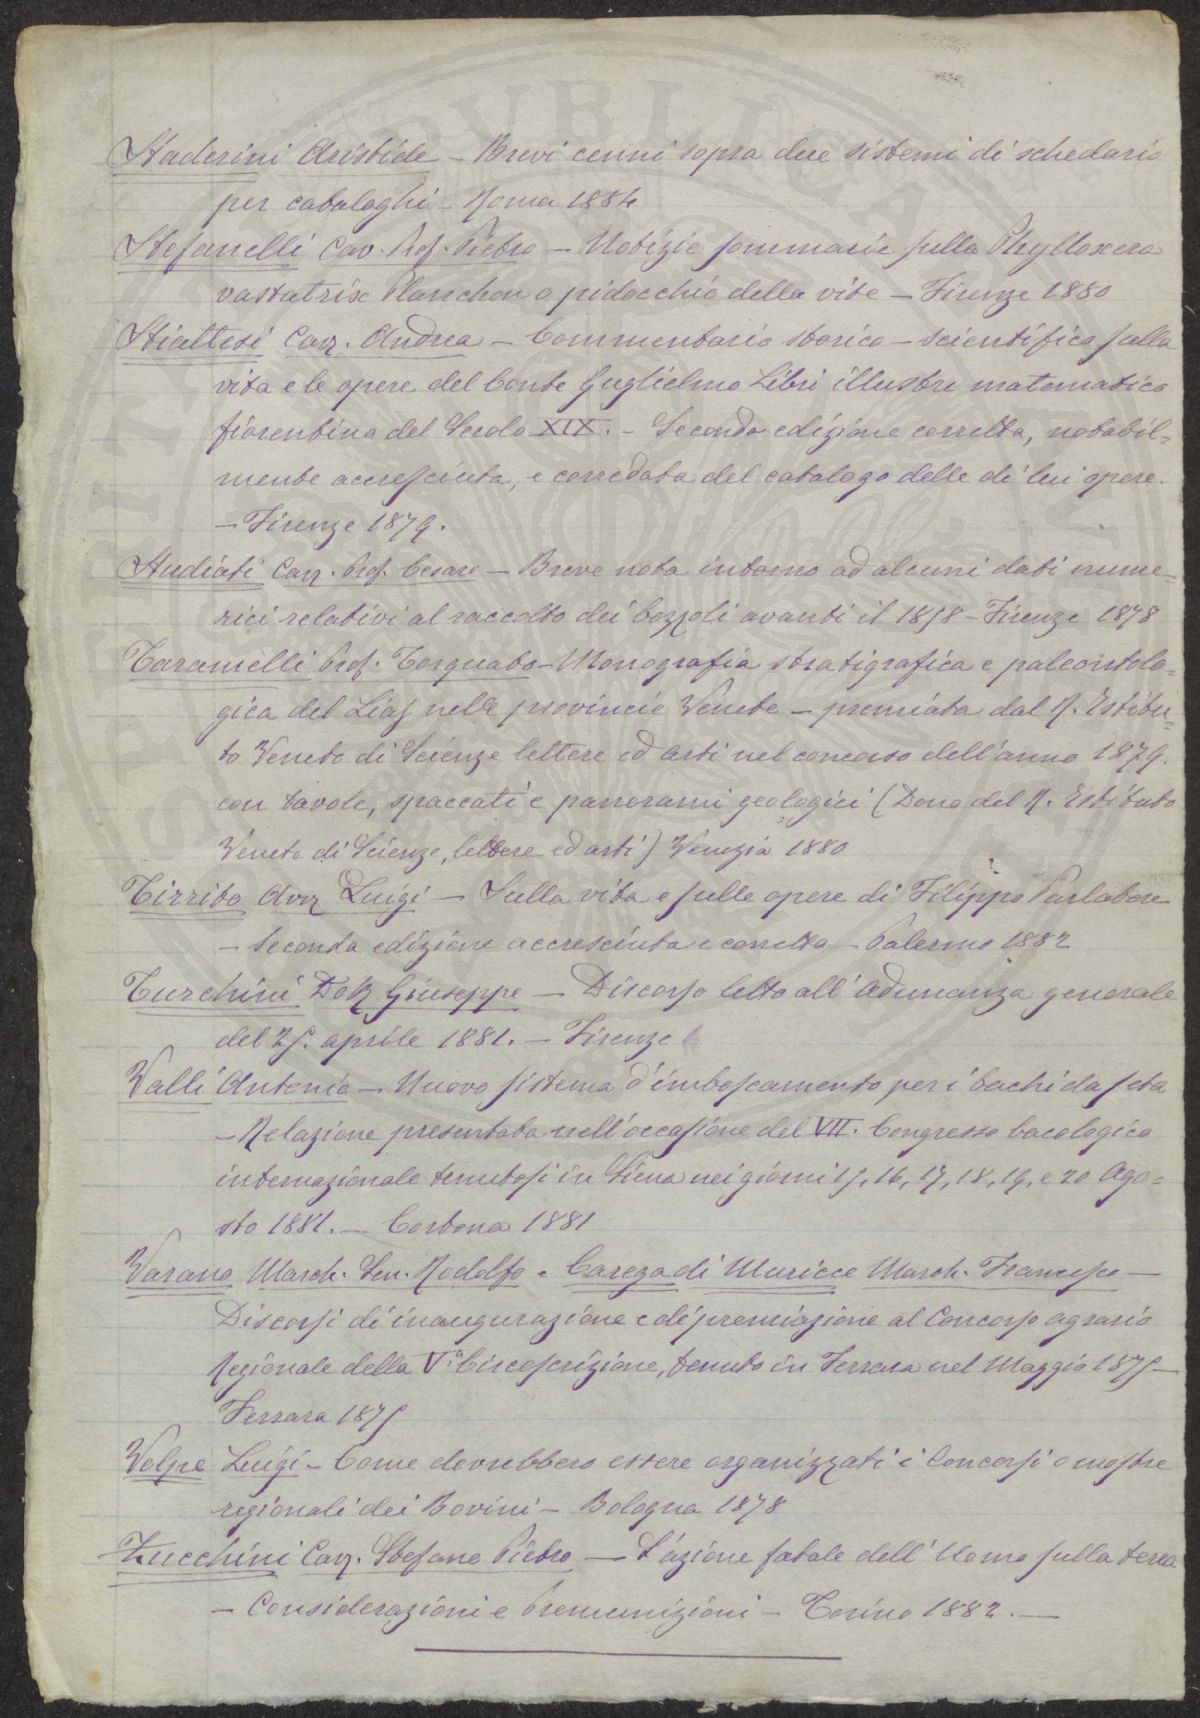 Staderini Aristide – Brevi cenni sopra due sistemi di schedario
per cataloghi – Roma 1884
Stefanelli Cav. Prof. Pietro – Notizie sommarie sulla Phylloxera
vastatrix Planchon o pidocchio della vite – Firenze 1880
Stiattesi Cav. Andrea – Commentario storico – scientifico sulla
vita e le opere del Conte Guglielmo Libri illustre matematico
fiorentino del Secolo XIX. – Seconda edizione corretta, notabil=
mente accresciuta, e corredata del catalogo delle di lui opere.
– Firenze 1879.
Studiati Cav. Prof. Cesare – Breve nota intorno ad alcuni dati nume=
rici relativi al raccolto dei bozzoli avanti il 1858 – Firenze 1878
Taramelli Prof. Torquato – Monografia stratigrafica e paleontolo=
gica del Lias nelle provincie Venete – premiata dal R. Istitu=
to Veneto di Scienze lettere ed arti nel concorso dell'anno 1879.
con tavole, spaccati e panorami geologici (Dono del R. Istituto
Veneto di Scienze, lettere ed arti) Venezia 1880
Tirrito Avv Luigi – Sulla vita e sulle opere di Filippo Parlatore
– Seconda edizione accresciuta e corretta – Palermo 1882
Turchini Dott Giuseppe – Discorso letto all'Adunanza generale
del 25. aprile 1881. – Firenze
Valli Antonio – Nuovo sistema d'imboscamento per i bachi da seta
– Relazione presentata nell'occasione del VII. Congresso bacologico
internazionale tenutosi in Siena nei giorni 15, 16, 17, 18, 19, e 20 Ago=
sto 1881. – Cortona 1881
Varano March. Sen. Rodolfo e Carega di Muricce March. Francesco –
Discorsi di inaugurazione e di premiazione al Concorso agrario
Regionale della Va Circoscrizione, tenuto in Ferrara nel Maggio 1875 –
Ferrara 1875
Volpe Luigi – Come dovrebbero essere organizzati i Concorsi o mostre
regionali dei Bovini – Bologna 1878
Zucchini Cav. Stefano Pietro – L'azione fatale dell'Uomo sulla terra
– Considerazioni e Premunizioni – Torino 1882. –